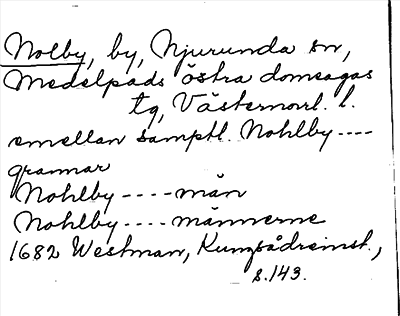 Nolby, by, Njurunda sn,
Medelpads östra domsagas
tg, Västernorrl. l.
emellan samptl. Nohlby----
grannar
Nohlby----män
Nohlby----männerne
1682 Westman, Kungsådreinst.,
s.143.